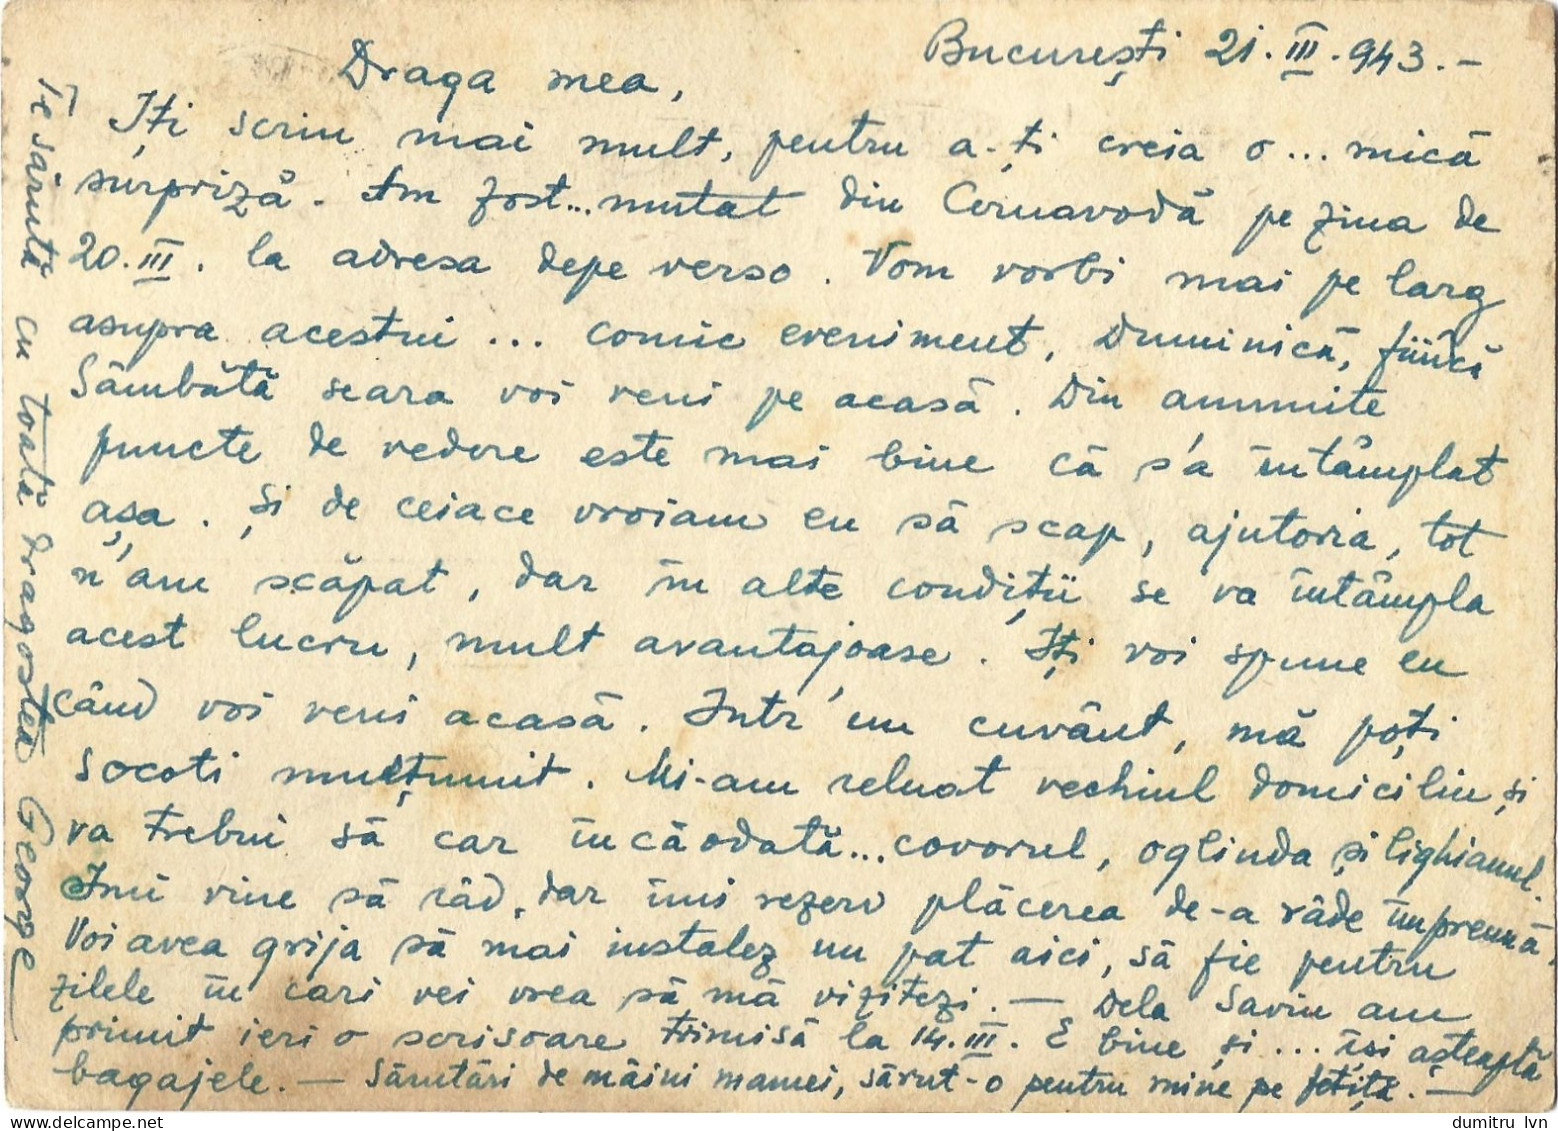 București 21.III.943.-
Draga mea,
Iți scriu mai mult, pentru a-ți creia o... mică
surpriză. Am fost...mutat din Cernavodă pe ziua de
20.III. la adresa depe verso. Vom vorbi mai pe larg
asupra acestui... comic eveniment, Duminică, fiincă
Sâmbătă seara voi veni pe acasă. Din anumite
puncte de vedere este mai bine că s'a întâmplat
așa. Și de ceiace vroiam eu să scap, ajutoria, tot
n'am scăpat, dar în alte condiții se va întâmpla
acest lucru, mult avantajoase. Iți voi spune eu
când voi veni acasă. Intr'un cuvânt, mă poți
socoti mulțumit. Mi-am reluat vechiul domiciliu și
va trebui să car încăodată...covorul, oglinda și lighianul.
Imi vine să râd, dar îmi rezerv plăcerea de-a râde împreună.
Voi avea grija să mai instalez un pat aici, să fie pentru
zilele în cari vei vrea să mă vizitezi. — Dela Saviu am
primit ieri o scrisoare trimisă la 14.III. E bine și... își așteaptă
bagajele. — Sărutări de mâini mamei, sărut-o pentru mine pe fetiță. —
Te sărută cu toată dragostea George
dumitru lvn